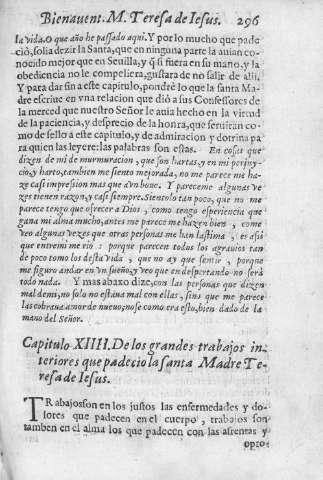 Bienauent. M. Teresa de Iesus. 296
la vida. O que año he passado aqui. Y por lo mucho que pade
ciò, solia dezir la Santa, que en ninguna parte la auian co-
nocido mejor que en Seuilla, y q̃ si fuera en su mano, y la
obediencia no le compeliera, gustara de no salir de alli.
Y para dar fin a este capitulo, pondrè lo que la santa Ma
dre escriue en vna relacion que diò a sus Confessores de
la merced que nuestro Señor le auia hecho en la virtud
de la paciencia, y desprecio de la honra, que seruiran co-
mo de sello à este capitulo, y de admiracion y dotrina pa
ra quien las leyere: las palabras son estas. En cosas que
dizen de mi de murmuracion, que son hartas, y en mi perjuy-
cio, y harto, tambien me siento mejorada, no me parece me ha-
ze casi impresion mas que a vn bouo. Y pareceme algunas ve
zes tienen razon, y casi siempre. Sientolo tan poco, que no me
parece tengo que ofrecer a Dios, como tengo esperiencia que
gana mi alma mucho, antes me parece me hazen bien, como
veo algunas vezes que otras personas me han lastima, es assi
que entre mi me riò: porque parecen todos los agrauios tan
de poco tomo los desta vida, que no ay que sentir, porque
me figuro andar en vn sueño, y veo que en despertando no serà
todo nada. Y mas abaxo dize, con las personas que dizen
mal demi, no solo no estoi mal con ellas, sino que me parece
las cobro amor de nueuo; no se como era esto, bien dado de la
mano del Señor.
Capitulo XIIII. De los grandes trabajos in-
teriores que padecio la santa Madre Te-
resa de Iesus.
TRabajos son en los justos las enfermedades y do-
lores que padecen en el cuerpo, trabajos son
tambien en el alma los que padecen con las afrentas y
opro-